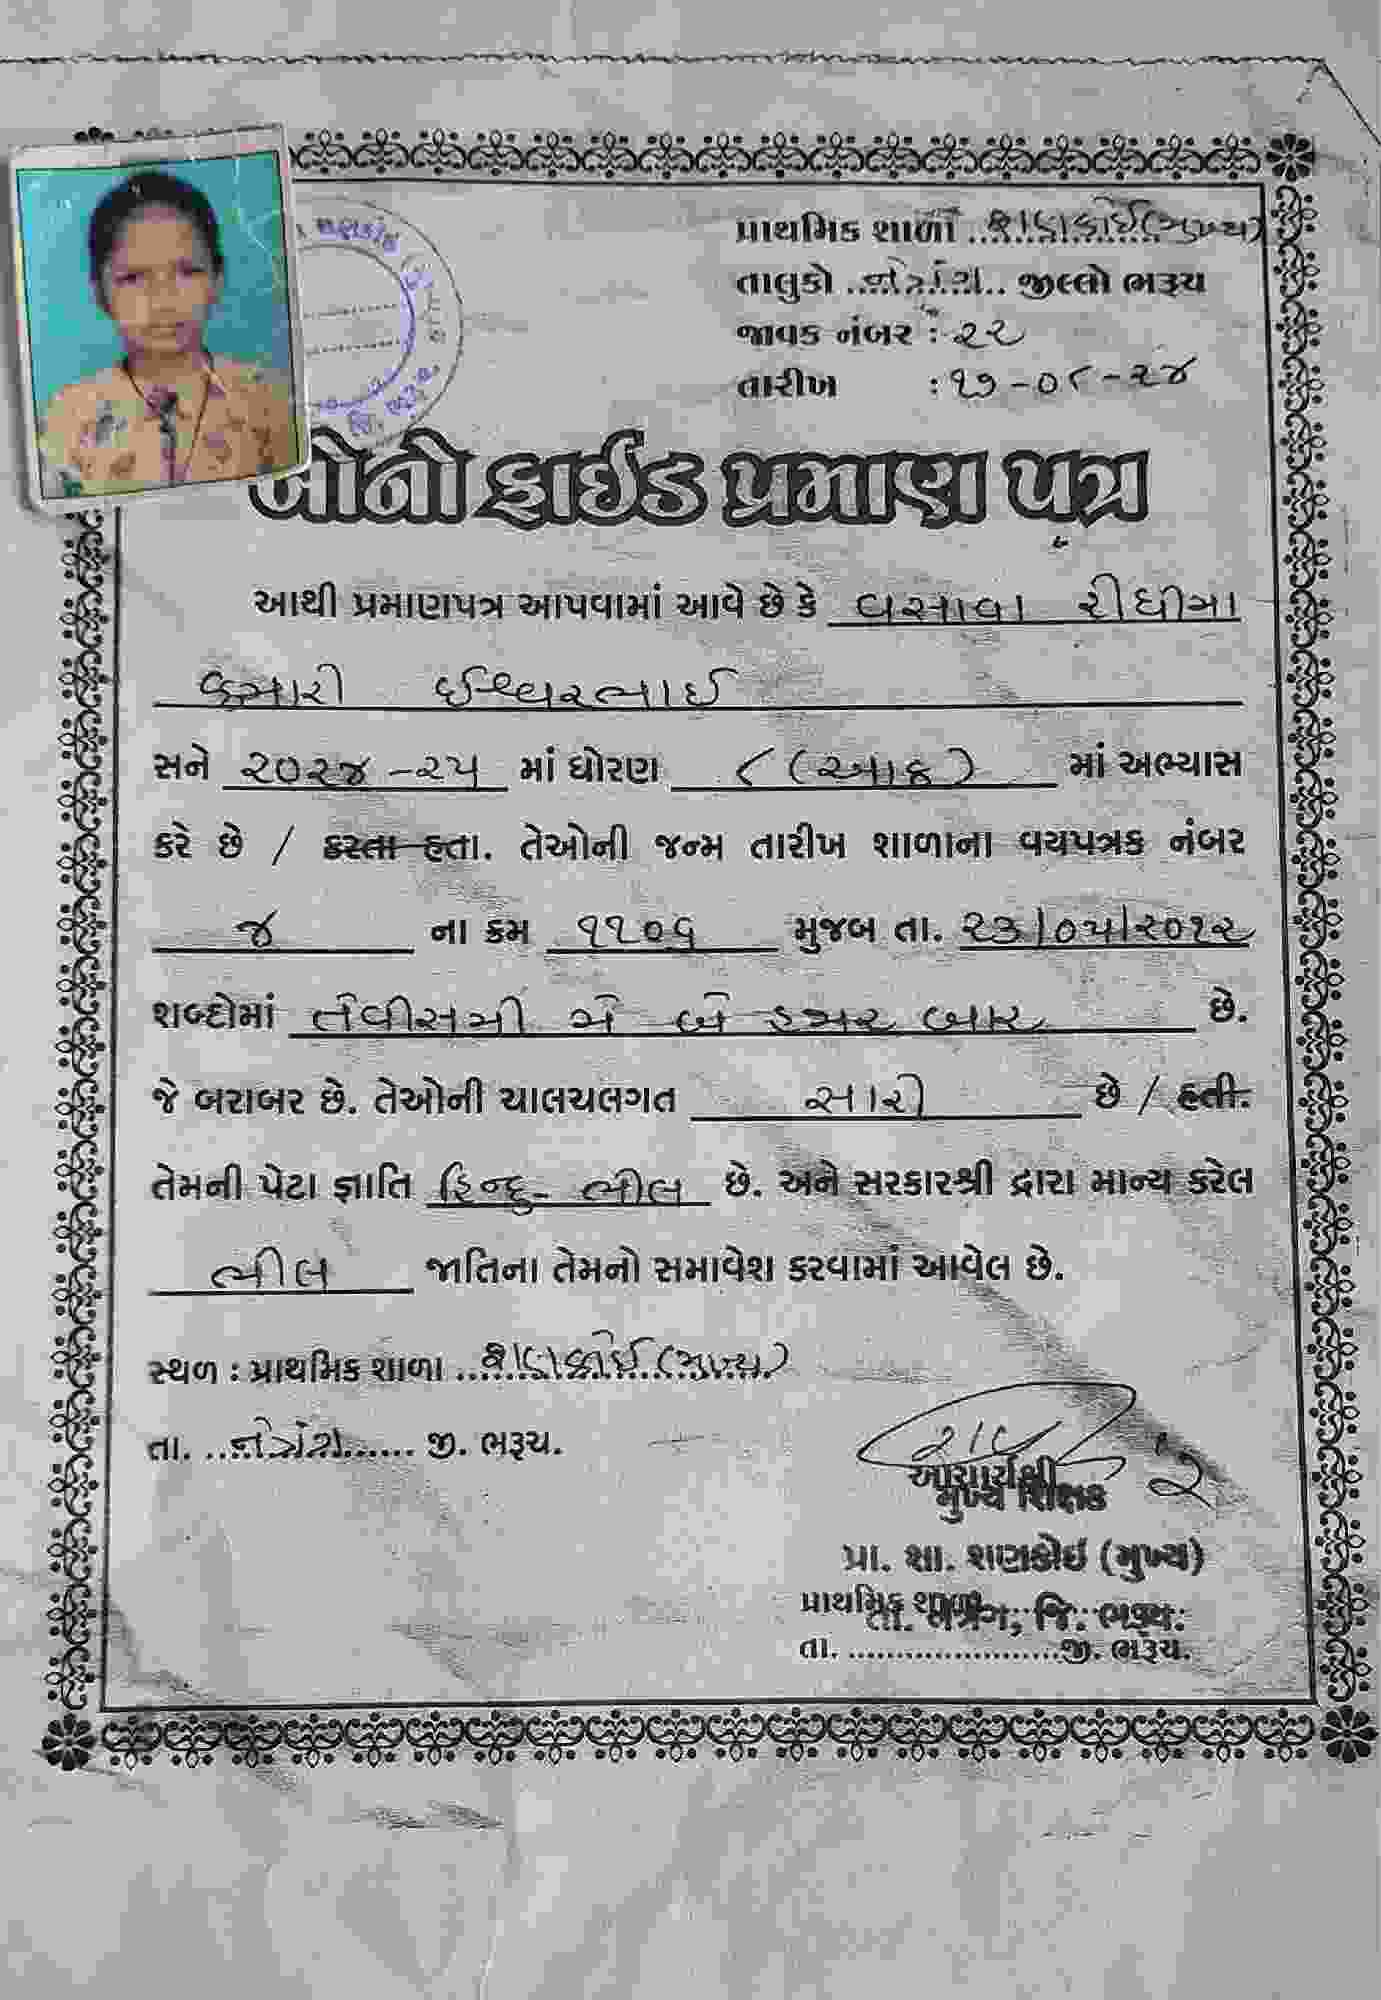 પ્રાથમિક શાળા શણકોઈ (મુખ્ય)
તાલુકો નેત્રંગ જીલ્લો ભરૂચ
જાવક નંબર : ૨૨
તારીખ : ૧૭-૦૮-૨૪
બોનોફાઈડ પ્રમાણ પત્ર
આથી પ્રમાણપત્ર આપવામાં આવે છે કે વસાવા રીધીમા
કુમારી ઈશ્વરભાઈ
સને ૨૦૨૪-૨૫ માં ધોરણ ૮ (આઠ) માં અભ્યાસ
કરે છે / કરતા હતા. તેઓની જન્મ તારીખ શાળાના વયપત્રક નંબર
૪ ના ક્રમ ૧૧૦૬ મુજબ તા. ૨૩/૦૫/૨૦૧૨
શબ્દોમાં તેવીસમી મે બે હજાર બાર છે.
જે બરાબર છે. તેઓની ચાલચલગત સારી છે / હતી.
તેમની પેટા જ્ઞાતિ હિન્દુ- ભીલ છે. અને સરકારશ્રી દ્વારા માન્ય કરેલ
ભીલ જાતિના તેમનો સમાવેશ કરવામાં આવેલ છે.
સ્થળ : પ્રાથમિક શાળા શણકોઈ (મુખ્ય)
તા. નેત્રંગ જી. ભરૂચ.
આચાર્યશ્રી
મુખ્ય શિક્ષક
પ્રા. શા. શણકોઇ (મુખ્ય)
પ્રાથમિક શાળા
તા. નેત્રંગ, જિ. ભરૂચ.
તા. ......................જી. ભરૂચ.